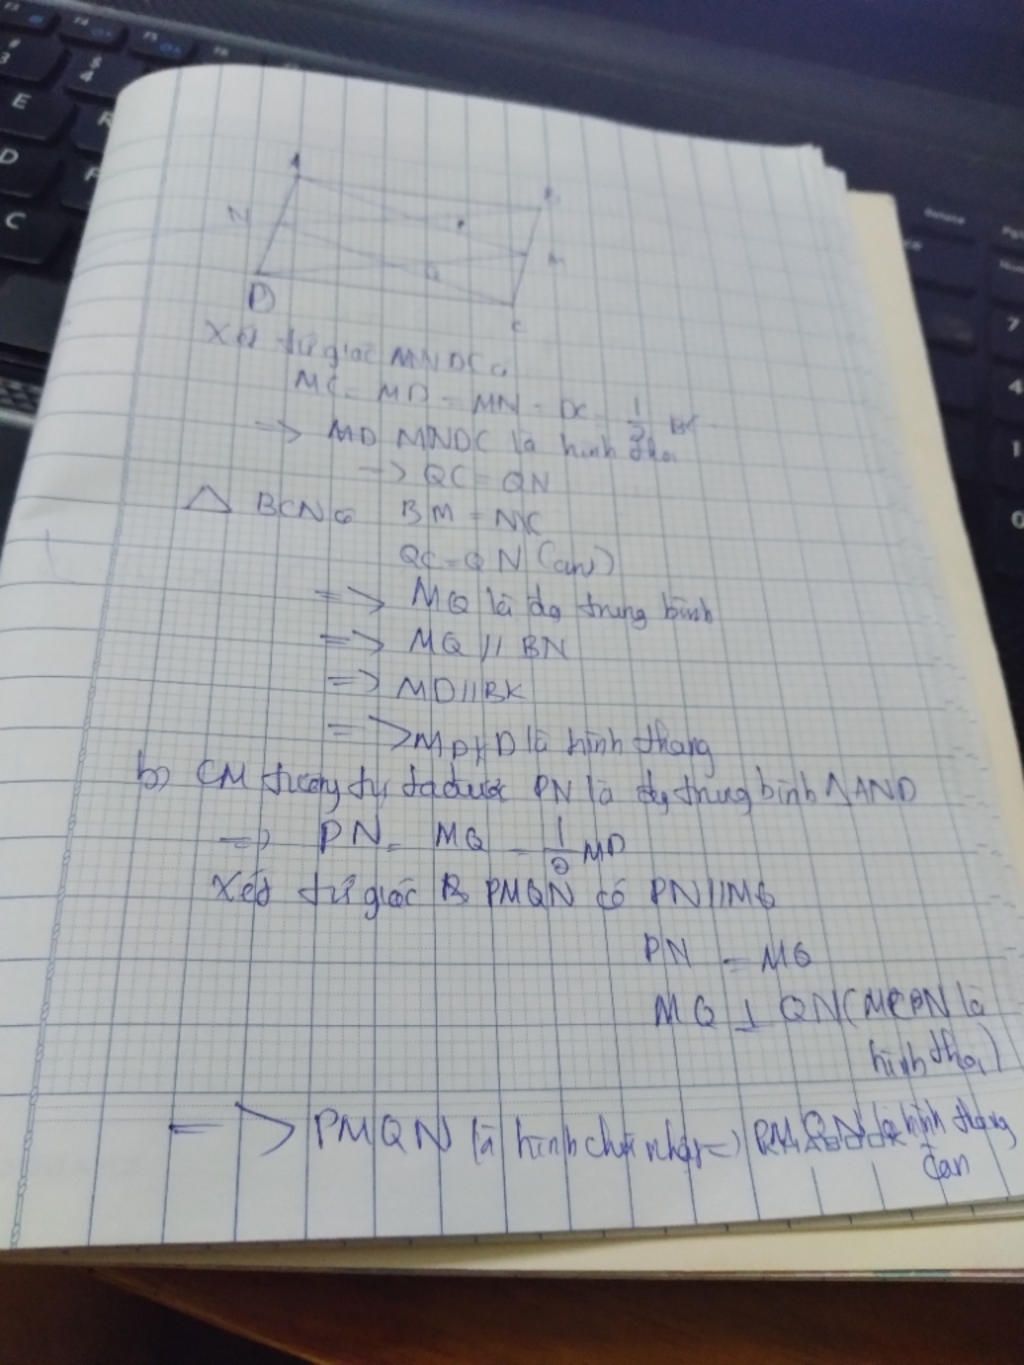 A
N
M
Q
D
C
Xét tứ giác MNDC có
MC = MD = MN = DC = 1/2 BC
=> MD MNDC là hình thoi
=> QC = QN
△ BCN có BM = MC
QC = QN (cm)
=> MQ là đg trung bình
=> MQ // BN
=> MD // BK
=> là hình thang
b) CM tương tự ta được PN là đg trung bình △AND
=> PN = MQ = 1/2 MD
Xét tứ giác B PMQN có PN // MQ
PN = MQ
MQ ⊥ QN ( là
hình thoi)
=> PMQN là hình chữ nhật => PMQN là hình thang
cân
E
R
D
F
C
3
4
7
4
1
0
Delete